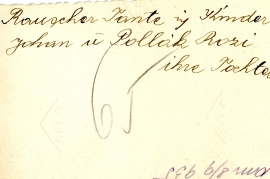 Rauscher Tante üj Kinder
Johan ü Pollák Rozi
ihre Tochter
65